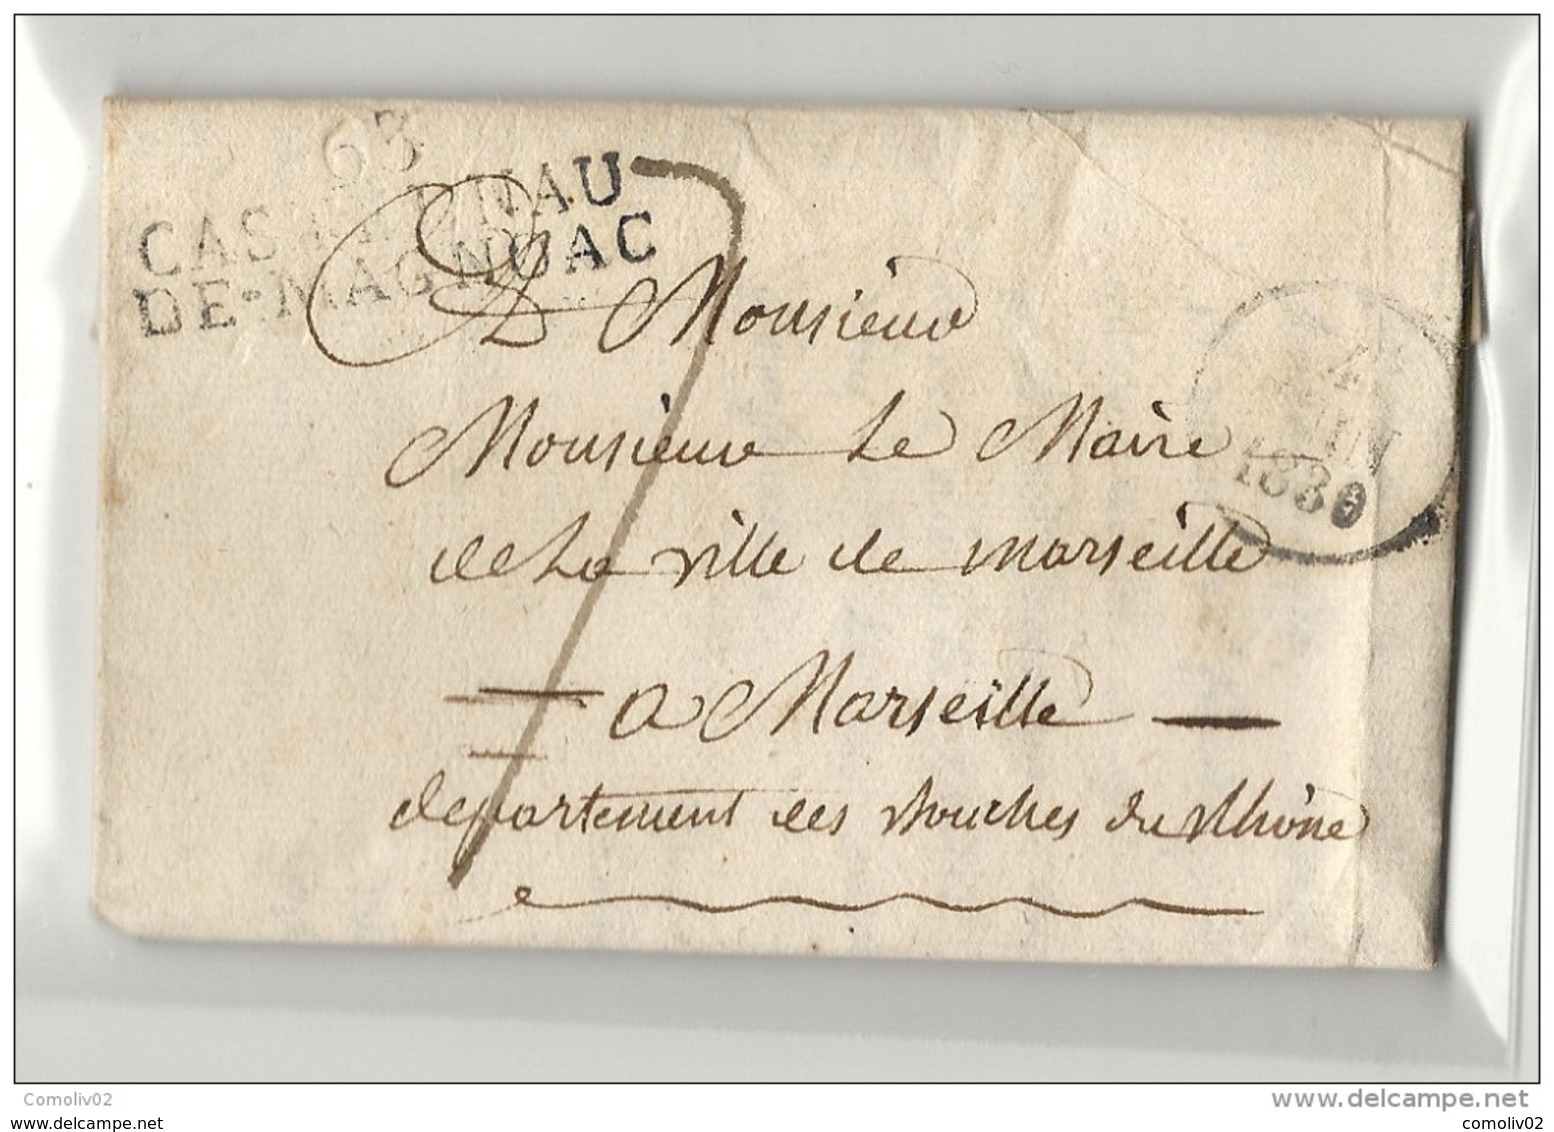 63
CASTELNAU
DE-MAGNOAC
7
A Monsieur
4
JUIN
1830
Monsieur Le Maire
de La ville de Marseille
a Marseille
departement des Bouches du Rhône
Comoliv02
www.delcampe.net
www.delcampe.net
comoliv02